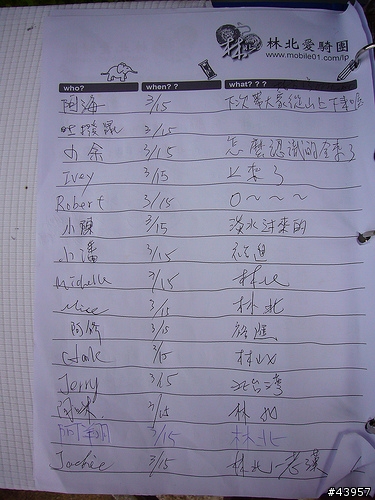 林北愛騎團
www.mobile01.com/lp
who? when?? what???
阿海 3/15 下次單大家從山上下車喔
3/15
小余 3/15 怎麼認識的全來了
Ivey 3/15 上來了
Robert 3/15 O~~~
小陳 3/15 淡水过來的
小潘 3/15 路過
Michelle 3/15 林北
Mice 3/15 林北
3/15 路過
3/15 林北
Jerry 3/15 北台灣
3/15 林北
阿翔 3/15 林北
Jackie 3/15 林北-老漢
#43957